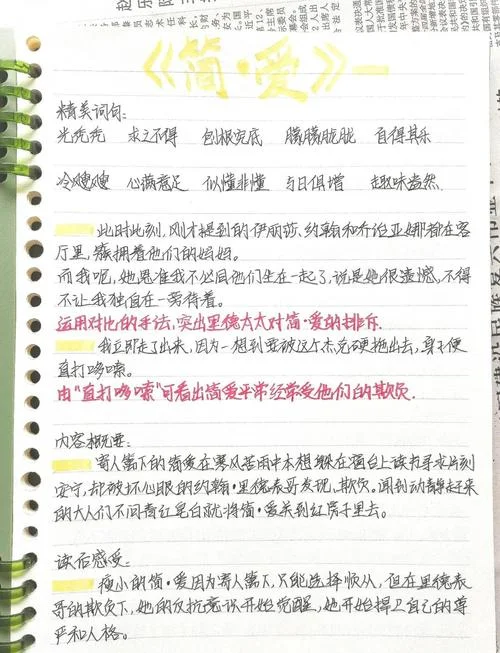 《简·爱》
精美词句:
光秃秃 求之不得 刨根究底 朦朦胧胧 自得其乐
冷飕飕 心满意足 似懂非懂 与日俱增 趣味盎然.
此时此刻, 刚才提到的伊丽莎、约翰和乔治亚娜都在客
厅里, 簇拥着他们的妈妈。
而我呢, 她恩准我不必同他们坐在一起了, 说是她很遗憾, 不得
不让我独自在一旁待着。
运用对比的手法, 突出里德太太对简·爱的排斥.
我立即走了出来, 因为一想到要被这个杰克硬拖出去, 身子便
直打哆嗦。
由“直打哆嗦”可看出简爱平常经常受他们的欺负.
内容概要:
寄人篱下的简爱在寒风苦雨中本想躲在窗台上读书寻求片刻
安宁, 却被坏心眼的约翰·里德表哥发现、欺负。闻到动静赶来
的大人们不问青红皂白就将简·爱关到红房子里去。
读后感受:
瘦小的简·爱因为寄人篱下, 只能选择顺从, 但在里德表
哥的欺负下, 她的反抗意识开始觉醒, 她开始捍卫自己的尊
严和人格。